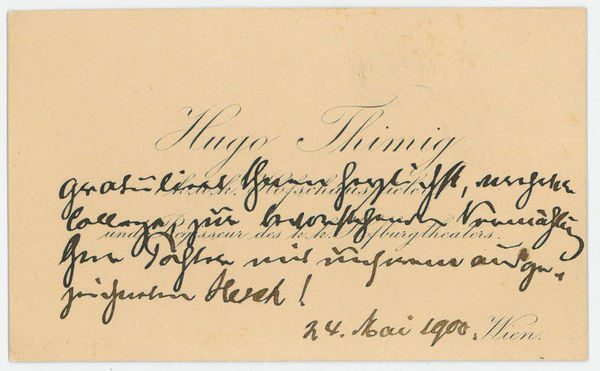 Hugo Thimig
k. u. k. Hofschauspieler
gratuliert Ihnen herzlichst, verehrter
und Regisseur des k. k. Hofburgtheaters.
College, zur bevorstehenden Vermählung
Ihrer Tochter mit unserem ausge-
zeichneten Hesch!
24. Mai 1900. Wien.